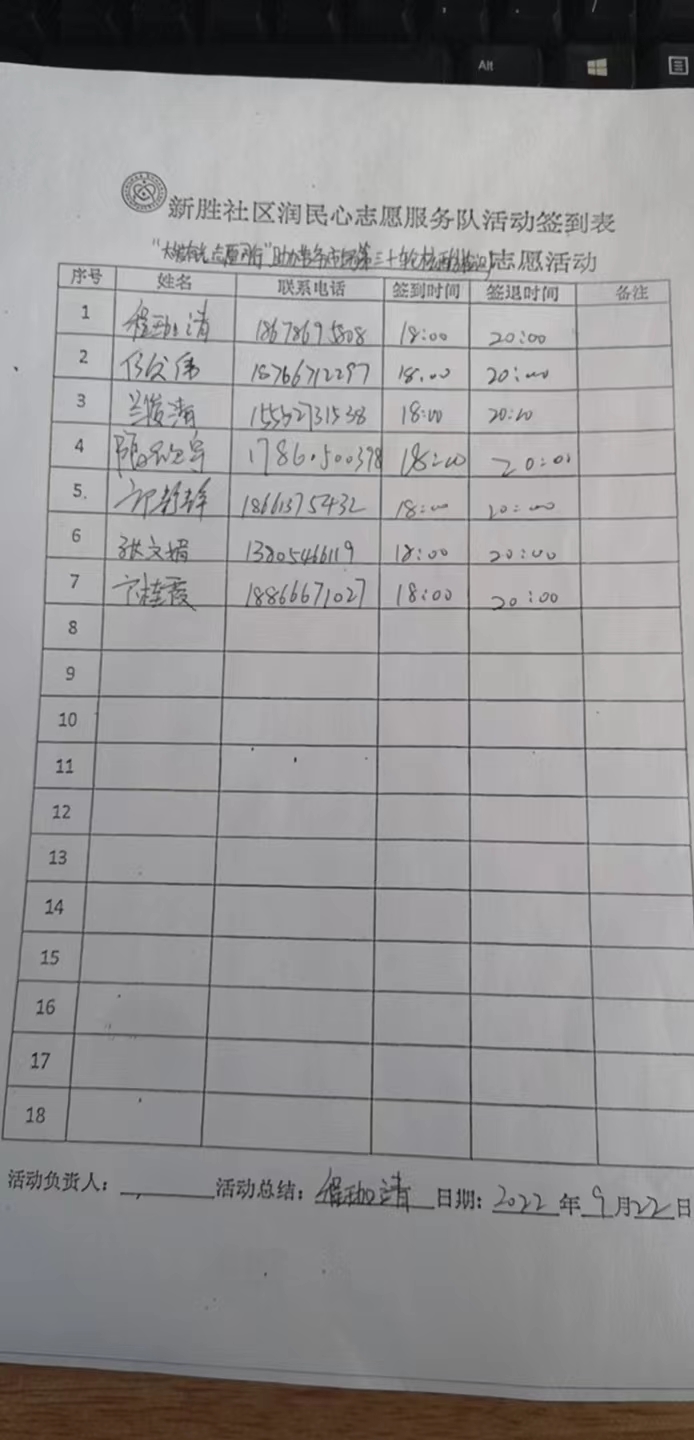 Alt
新胜社区润民心志愿服务队活动签到表
助力 第三十轮核酸检测 志愿活动
序号 姓名 联系电话 签到时间 签退时间 备注
1 程珈清 18678695808 18:00 20:00
2 伟 18766712297 18:00 20:00
3 兰俊清 15552731538 18:00 20:00
4 18:00 20:00
5. 18661375432 18:00 20:00
6 张文娟 13805466119 18:00 20:00
7 桂霞 18866671027 18:00 20:00
8
9
10
11
12
13
14
15
16
17
18
活动负责人: 活动总结: 程珈清 日期: 2022 年 9 月 22 日